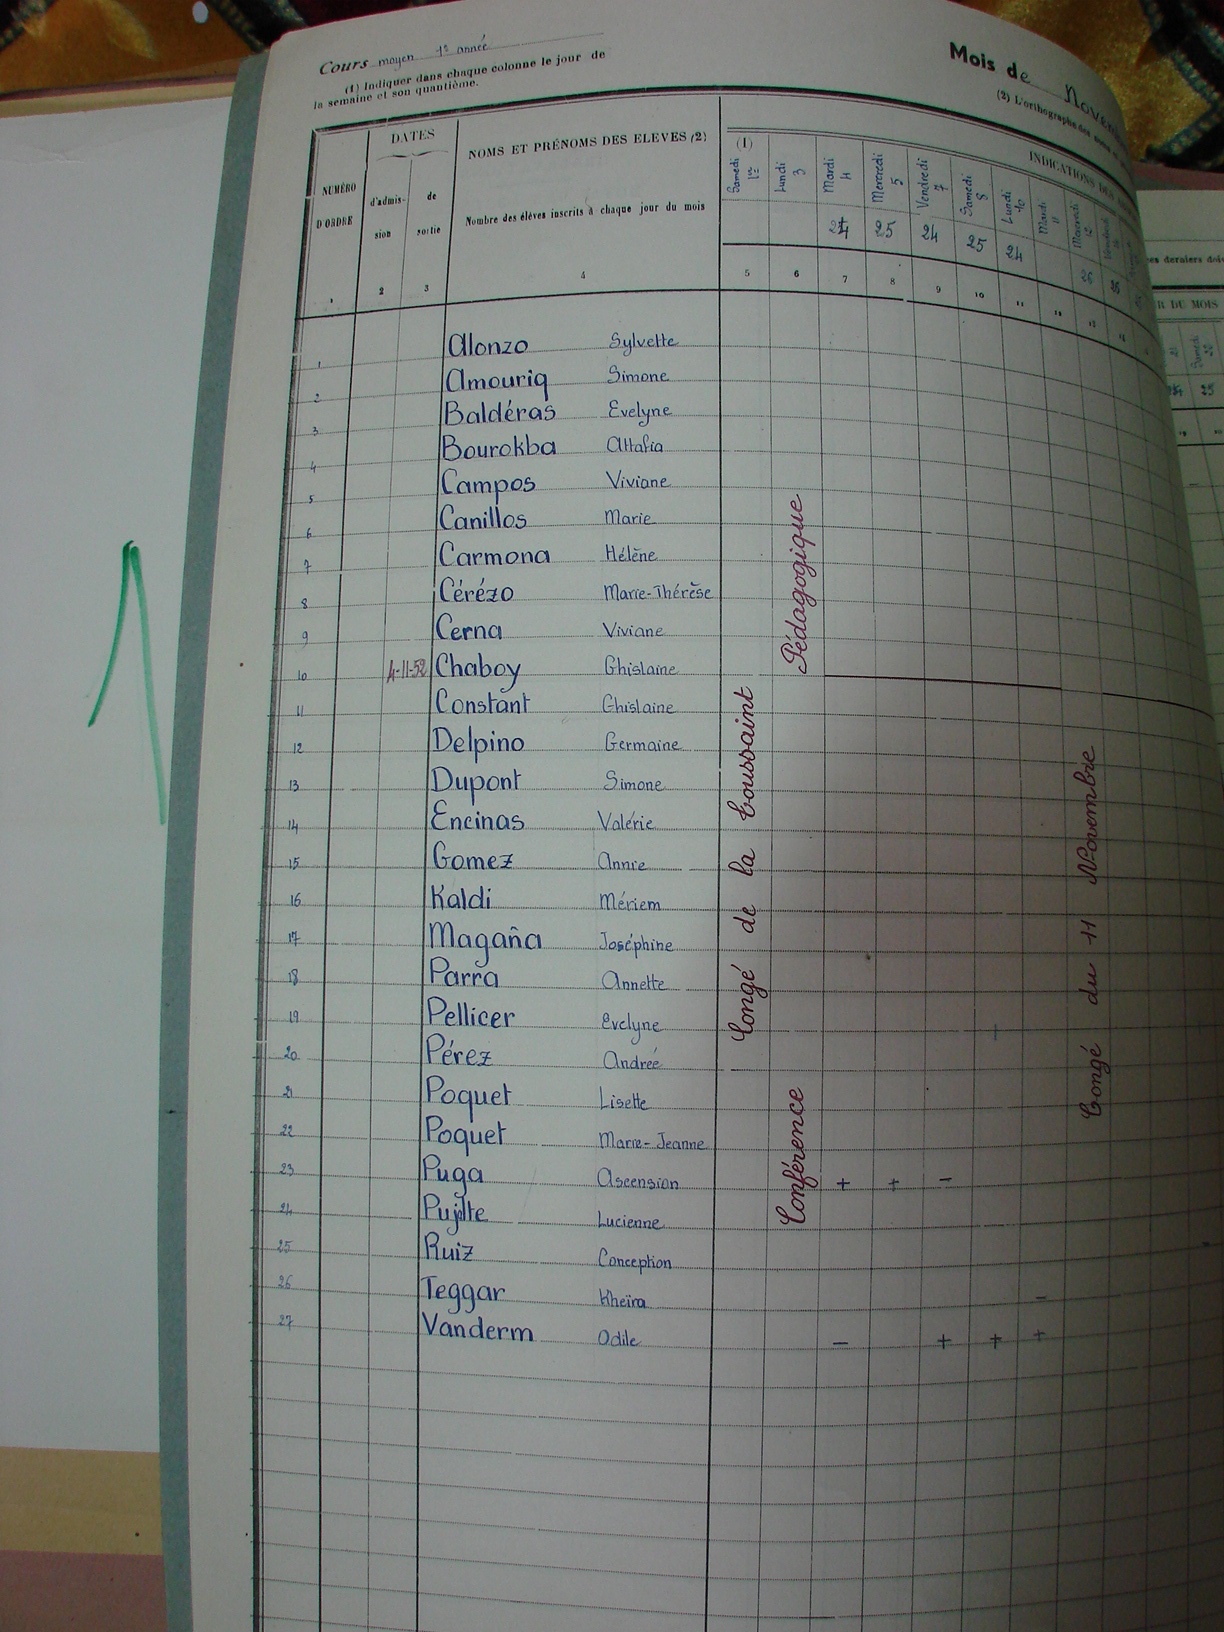 Cours moyen 1e année
Mois de Novem
(1) Indiquer dans chaque colonne le jour de
la semaine et son quantième.
(2) L'orthographe des noms
NUMÉRO
D'ORDRE
DATES
d'admis-
sion
de
sortie
NOMS ET PRÉNOMS DES ELEVES (2)
Nombre des élèves inscrits à chaque jour du mois
(1)
INDICATIONS DES
Samedi 1er
Lundi 3
Mardi 4
Mercredi 5
Vendredi 7
Samedi 8
Lundi 10
Mardi 11
Mercredi 12
Vendredi
24 25 24 25 24 26 26
1 2 3 4 5 6 7 8 9 10 11 12 13
1 Alonzo Sylvette
2 Amouriq Simone
3 Baldéras Evelyne
4 Bourokba Attafia
5 Campos Viviane
6 Canillos Marie
7 Carmona Hélène
8 Cérézo Marie-Thérèse
9 Cerna Viviane
10 4-11-52 Chaboy Ghislaine
11 Constant Ghislaine
12 Delpino Germaine
13 Dupont Simone
14 Encinas Valérie
15 Gomez Annie
16 Kaldi Mériem
17 Magaña Joséphine
18 Parra Annette
19 Pellicer Evelyne
20 Pérez Andrée
21 Poquet Lisette
22 Poquet Marie-Jeanne
23 Puga Ascension + + -
24 Pujalte Lucienne
25 Ruiz Conception
26 Teggar Kheïra -
27 Vanderm Odile - + + +
Congé de la Toussaint
Conférence Pédagogique
Congé du 11 Novembre
es derniers doi
R DU MOIS
Samedi 22
25